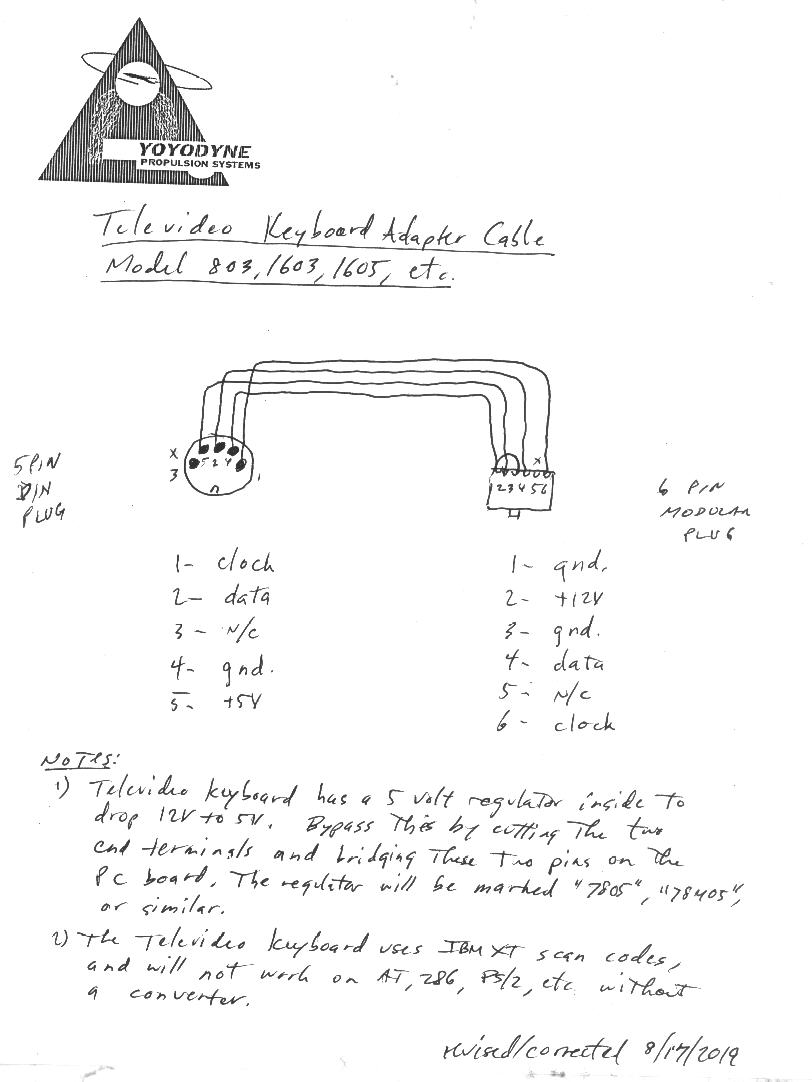 YOYODYNE
PROPULSION SYSTEMS
Televideo Keyboard Adapter Cable
Model 803, 1603, 1605, etc.
5 PIN
DIN
PLUG
X
3 5 2 4 1
X
1 2 3 4 5 6
6 PIN
MODULAR
PLUG
1- clock
2- data
3- N/C
4- gnd.
5- +5V
1- gnd.
2- +12V
3- gnd.
4- data
5- N/C
6- clock
NOTES:
1) Televideo keyboard has a 5 volt regulator inside to
drop 12V to 5V. Bypass this by cutting the two
end terminals and bridging these two pins on the
PC board. The regulator will be marked "7805", "78M05",
or similar.
2) The Televideo keyboard uses IBM XT scan codes,
and will not work on AT, 286, PS/2, etc without
a converter.
revised/corrected 8/17/2019